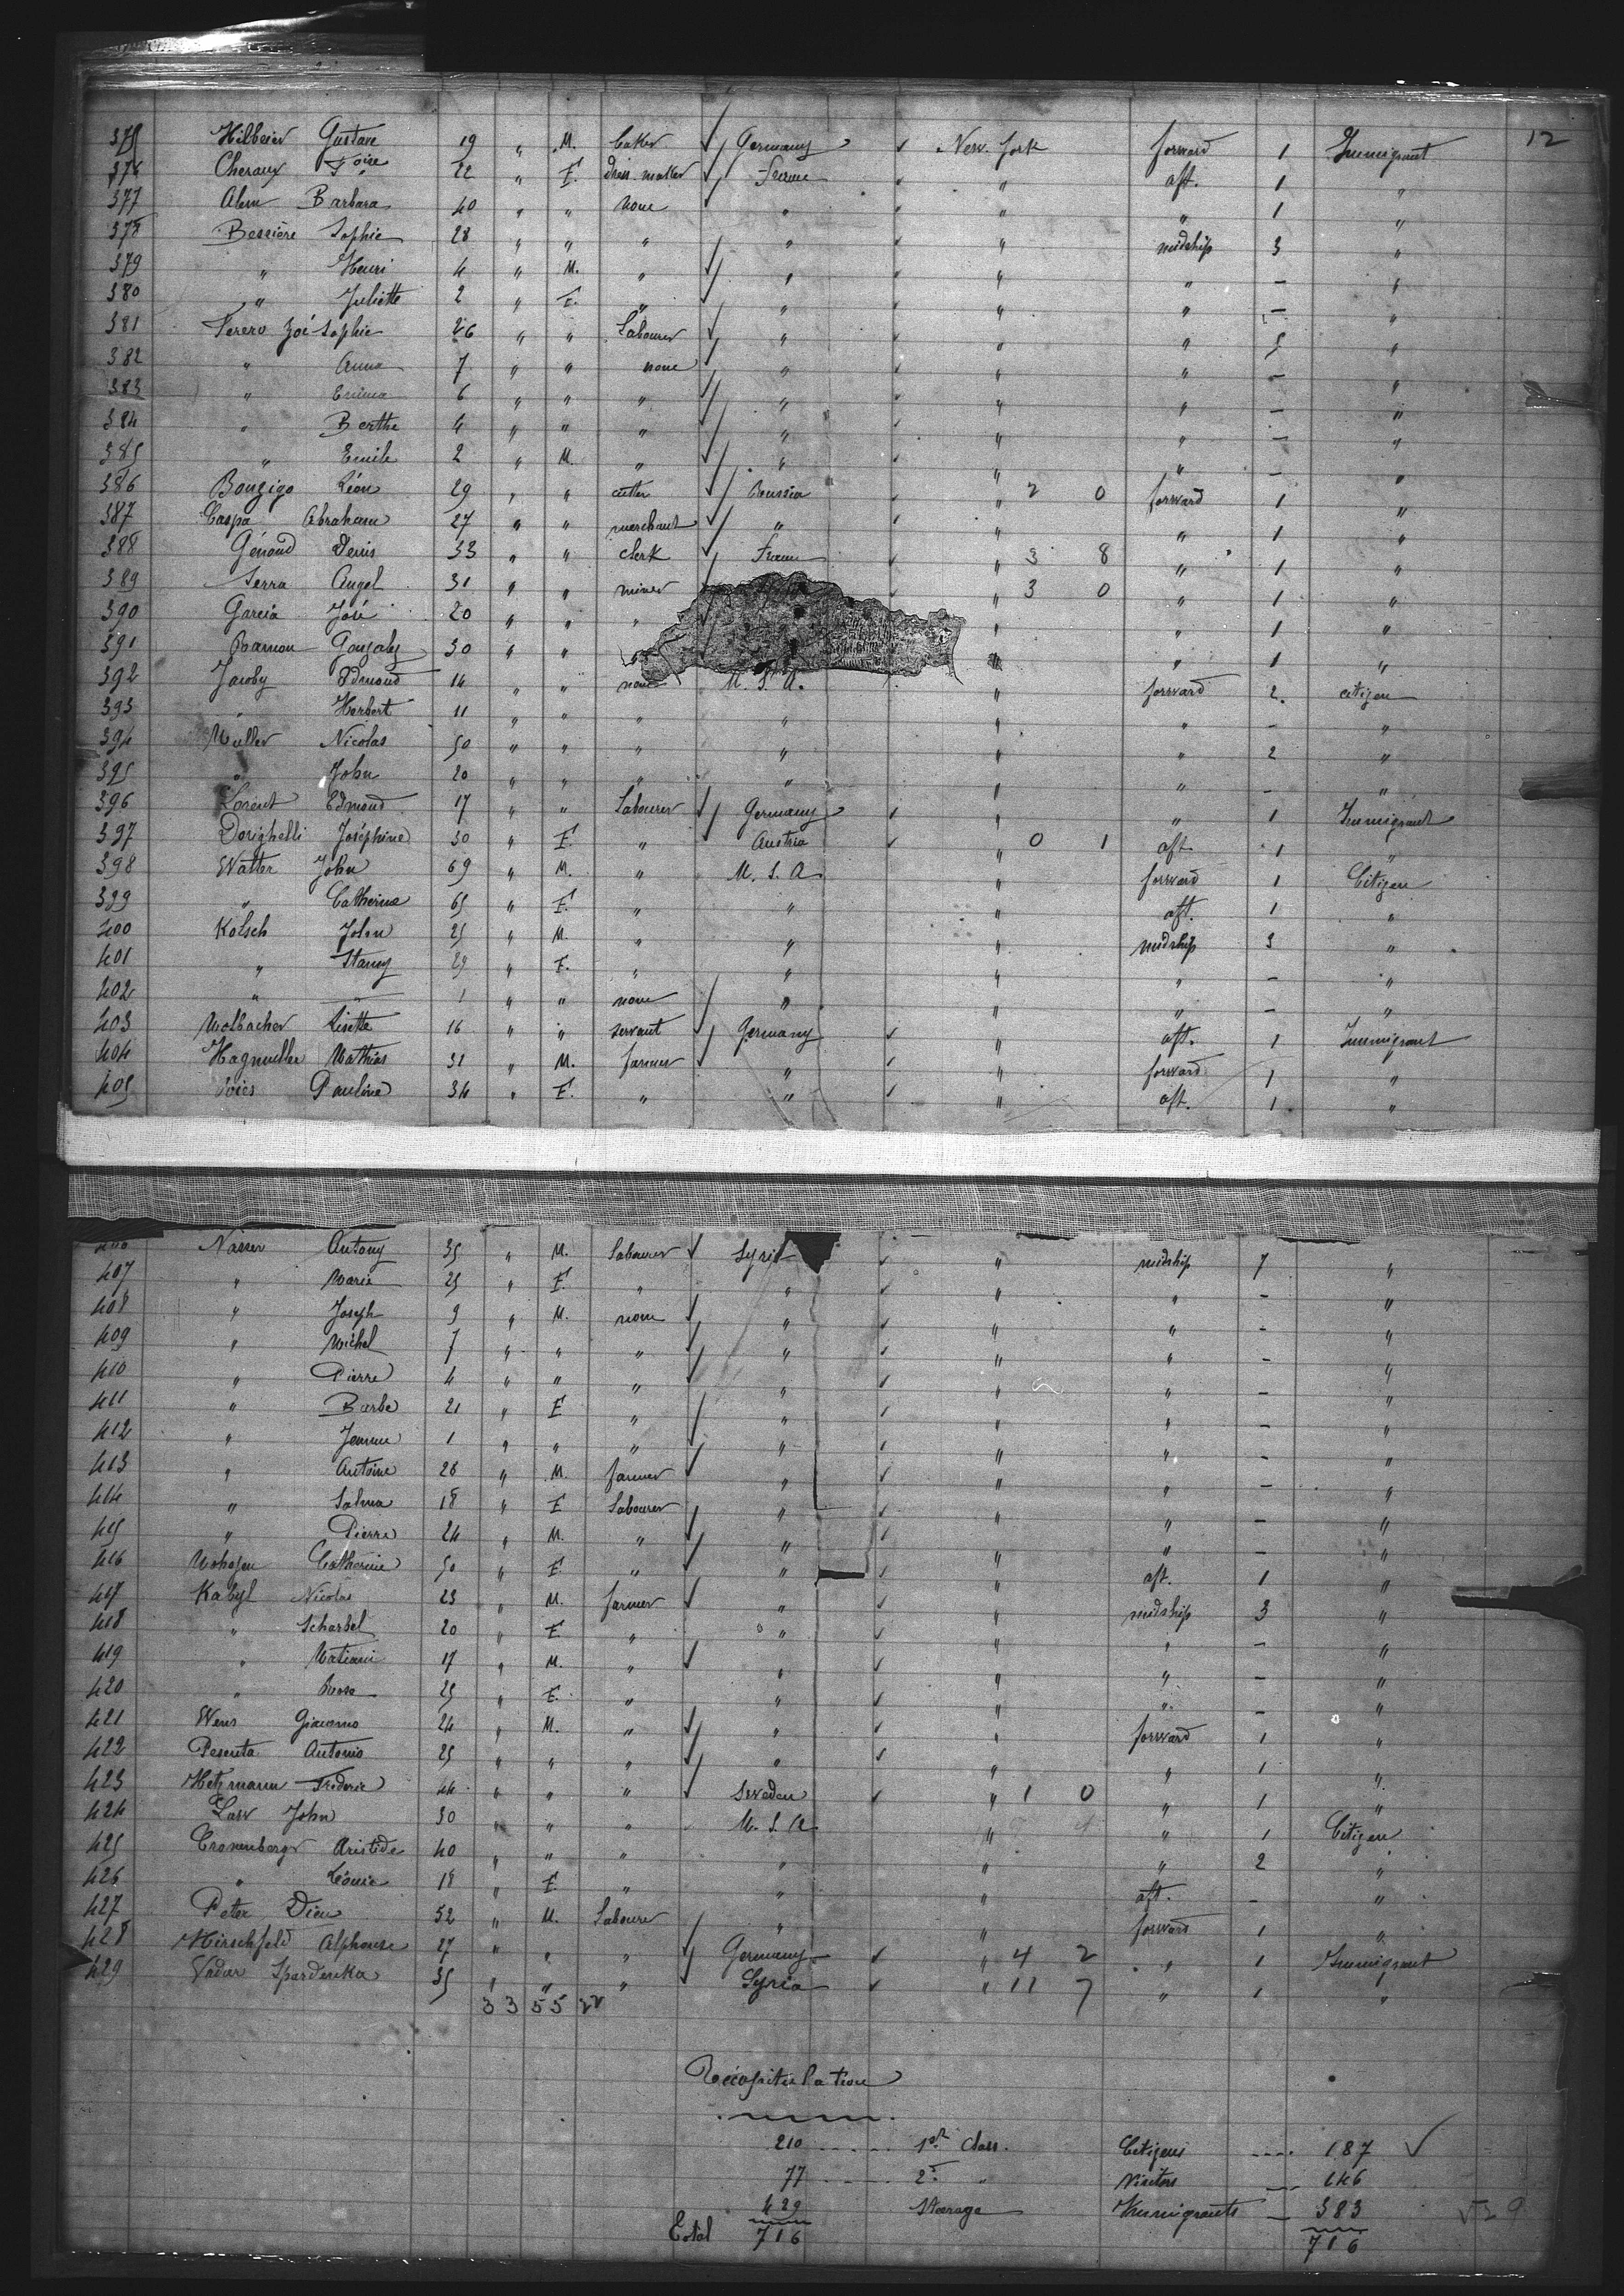 12
375 Hilbeier Gustave 19 " M. baker Germany New York forward 1 Immigrant
376 Cheraux 22 " F. dress maker France " aft. 1 "
377 Alem Barbara 40 " " none " " " 1 "
378 Bessière Sophie 28 " " " " " midship 3 "
379 " Henri 4 " M. " " " " - "
380 " Juliette 2 " F. " " " " - "
381 Zoé Sophie 26 " " Labourer " " " 5 "
382 " Anna 7 " " none " " " - "
383 " Emma 6 " " " " " " - "
384 " Berthe 4 " " " " " " - "
385 " Emile 2 " M. " " " " - "
386 Bouzigo Léon 29 " " cutter Russia " 2 0 forward 1 "
387 Caspa Abraham 27 " " merchant " " " 1 "
388 Génoud Denis 33 " " clerk France " 3 8 " 1 "
389 Serra Angel 31 " " miner " 3 0 " 1 "
390 Garcia José 20 " " " " " 1 "
391 Ramon Gonzalez 30 " " " " 1 "
392 Jacoby Edmond 14 " " none U. S. A. " forward 2. citizen
393 " Herbert 11 " " " " " " - "
394 Muller Nicolas 50 " " " " " " 2 "
395 " John 20 " " " " " " - "
396 Lorent Edmond 17 " " Labourer Germany " " 1 Immigrant
397 Dorighelli Joséphine 30 " F. " Austria " 0 1 aft 1 "
398 Walter John 69 " M. " U. S. A. " forward 1 Citizen
399 " Catherine 65 " F. " " " aft. 1 "
400 Kolsch John 25 " M. " " " midship 3 "
401 " Stany 29 " F. " " " " - "
402 " — 1 " " none " " " - "
403 Molbacher Lisette 16 " " servant Germany " aft. 1 Immigrant
404 Hagmuller Mathias 31 " M. farmer " " forward 1 "
405 Pauline 34 " F. " " " aft. 1 "
406 Nasser Antony 35 " M. Labourer Syria " midship 7 "
407 " Marie 25 " F. " " " " - "
408 " Joseph 9 " M. none " " " - "
409 " Michel 7 " " " " " " - "
410 " Pierre 4 " " " " " " - "
411 " Barbe 21 " F " " " " - "
412 " Jeanne 1 " " " " " " - "
413 " Antoine 26 " M. farmer " " " - "
414 " Salma 18 " F Labourer " " " - "
415 " Pierre 24 " M. " " " " - "
416 Catherine 50 " F. " " " aft. 1 "
417 Kabyl Nicolas 23 " M. farmer " " midship 3 "
418 " Scharbel 20 " F " " " " - "
419 " 17 " M. " " " " - "
420 " Rosa 25 " F. " " " " - "
421 Wens Giacomo 24 " M. " " " forward 1 "
422 Pesenta Antonio 25 " " " " " " 1 "
423 Hetzmann Frederic 44 " " " Sweden " 1 0 " 1 "
424 Law John 30 " " " U. S. A. " " 1 Citizen
425 Cronenberger Aristide 40 " " " " " " 2 "
426 " Léonie 18 " F " " " aft. - "
427 Peter Dieu 52 " M. Labourer " " forward 1 "
428 Hirschfeld Alphonse 27 " " " Germany " 4 2 " 1 Immigrant
429 Vadar 35 " " " Syria " 11 7 " 1 "
3 3 5 5
Récapitulation
210 ...... 1st Class. Citizens .... 187
77 ...... 2d " Visitors 146
429 Steerage Immigrants — 383
Total 716 716